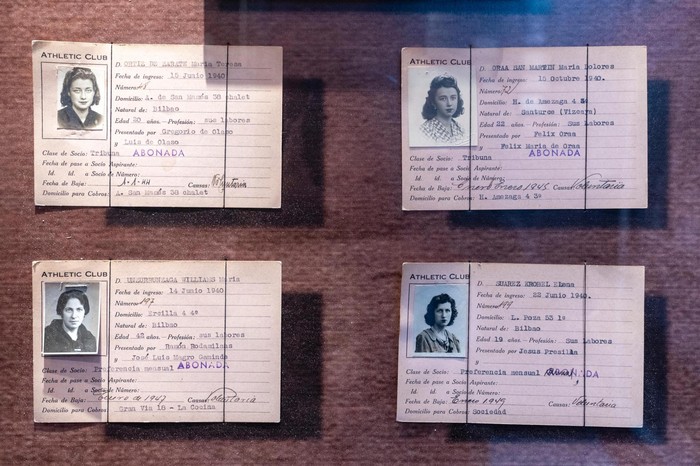 ATHLETIC CLUB
D. ORTIZ DE ZARATE Maria Teresa
Fecha de ingreso: 15 Junio 1940
Número:
Domicilio: A. de San Mamés 58 chalet
Natural de: Bilbao
Edad 20 años.-Profesión: sus labores
Presentado por Gregorio de Olaso
y Luis de Olaso
Clase de Socio: Tribuna ABONADA
Fecha de pase a Socio Aspirante:
Id. id. a Socio de Número:
Fecha de Baja: Causa: Voluntaria
Domicilio para Cobros: A. San Mamés 58 chalet
ATHLETIC CLUB
D. GRAA SAN MARTIN Maria Dolores
Fecha de ingreso: 15 Octubre 1940.
Número: 721
Domicilio: H. de Amezaga 4 3º
Natural de: Santurce (Vizcaya)
Edad 22 años.-Profesión: Sus Labores
Presentado por Felix Graa
y Felix Maria de Graa
Clase de Socio: Tribuna ABONADA
Fecha de pase a Socio Aspirante:
Id. id. a Socio de Número:
Fecha de Baja: Enero 1945 Causa: Voluntaria
Domicilio para Cobros: H. Amezaga 4 3º
ATHLETIC CLUB
D. WILLIAMS Maria
Fecha de ingreso: 14 Junio 1940
Número: 197
Domicilio: Ercilla 4 4º
Natural de: Bilbao
Edad 42 años.-Profesión: sus labores
Presentado por Ramón Rodamilans
y José Luis Magro
Clase de Socio: Preferencia mensual ABONADA
Fecha de pase a Socio Aspirante:
Id. id. a Socio de Número:
Fecha de Baja: Enero de 1947 Causa: Voluntaria
Domicilio para Cobros: Gran Via 18 - La Cocina
ATHLETIC CLUB
D. SUAREZ Elena
Fecha de ingreso: 22 Junio 1940.
Número: 499
Domicilio: L. Poza 53 1º
Natural de: Bilbao
Edad 19 años.-Profesión: Sus Labores
Presentado por Jesus Presilla
y
Clase de Socio: Preferencia mensual ABONADA
Fecha de pase a Socio Aspirante:
Id. id. a Socio de Número:
Fecha de Baja: Enero 1949 Causa: Voluntaria
Domicilio para Cobros: Sociedad